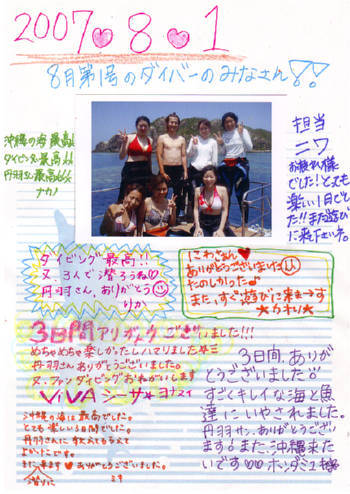 2007♥8♥1
8月第1号のダイバーのみなさん!!
沖縄の海 最高!
ダイビング最高!!
丹羽さん最高!!
ナカノ
担当
ニワ
お疲れ様
でした!とても
楽しい1日でし
た!!また遊び
に来て下さいネ。
ダイビング 最高!!
又、3人で潜ろうね
丹羽さん、ありがとう
りか
にわさん♥
ありがとうございました
たのしかった♪
また、すぐ遊びに来まーす
★かおり★
3日間アリガトウございました!!!
めちゃめちゃ楽しかったしハマりました
丹羽さんありがとうございました。
又、ファンダイビングおねがいします
VIVA シーサー★ヨナスイ
沖縄の海は最高でした。
とても楽しい3日間でした。
丹羽さんに教えてもらえて
よかったです。
また来ます♥ありがとうございました。
潜りに
3日間、ありが
とうございました!!
すごくキレイな海と魚
達にいやされました。
丹羽サン、ありがとうござい
ます!また、沖縄来た
いです♡♡ホンダミユ